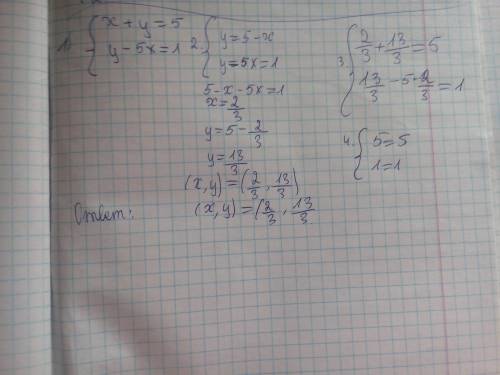 1) { x + y = 5
y - 5x = 1
2. { y = 5 - x
y - 5x = 1
5 - x - 5x = 1
x = 2/3
y = 5 - 2/3
y = 13/3
(x, y) = (2/3, 13/3)
Ответ: (x, y) = (2/3, 13/3
3. { 2/3 + 13/3 = 5
13/3 - 5 · 2/3 = 1
4. { 5 = 5
1 = 1